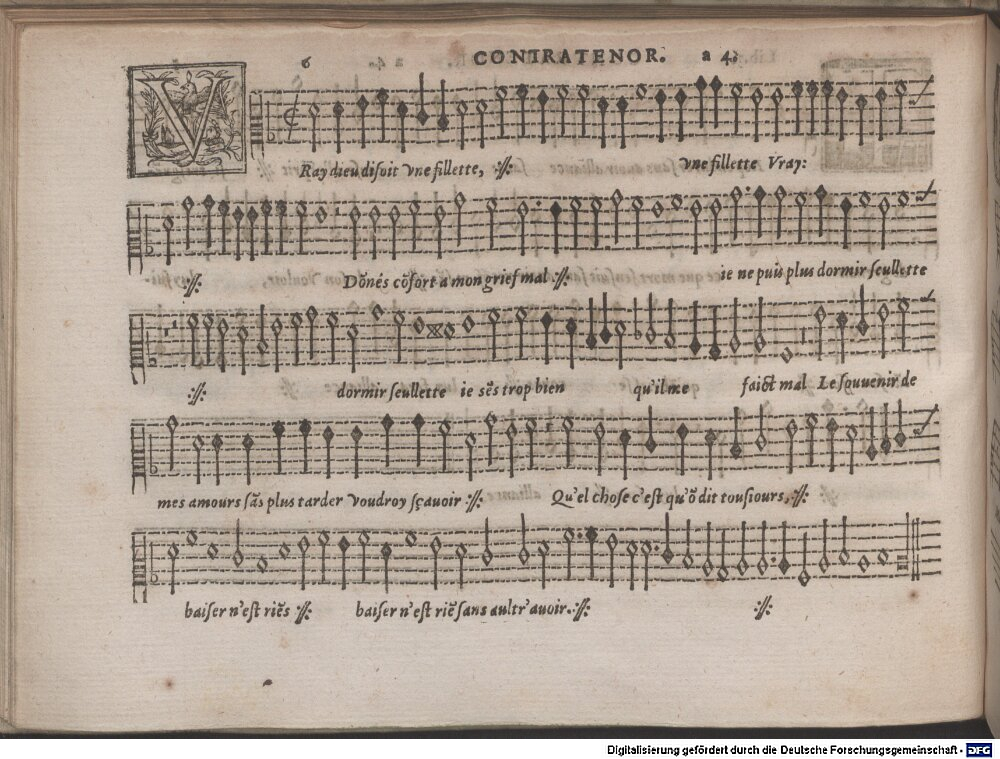 6 CONTRATENOR. a 4.
VRay dieu disoit vne fillette, :// : vne fillette Vray:
:// : Dōnés cōfort a mon grief mal :// : ie ne puis plus dormir seullette
:// : dormir seullette ie sēs trop bien qu'il me faict mal Le sou uenir de
mes amours sãs plus tarder voudroy sçauoir :// : Qu'el chose c'est qu'õ dit tousiours, :// :
baiser n'est riēs :// : baiser n'est riē sans aultr' auoir. :// : :// :
Digitalisierung gefördert durch die Deutsche Forschungsgemeinschaft - DFG